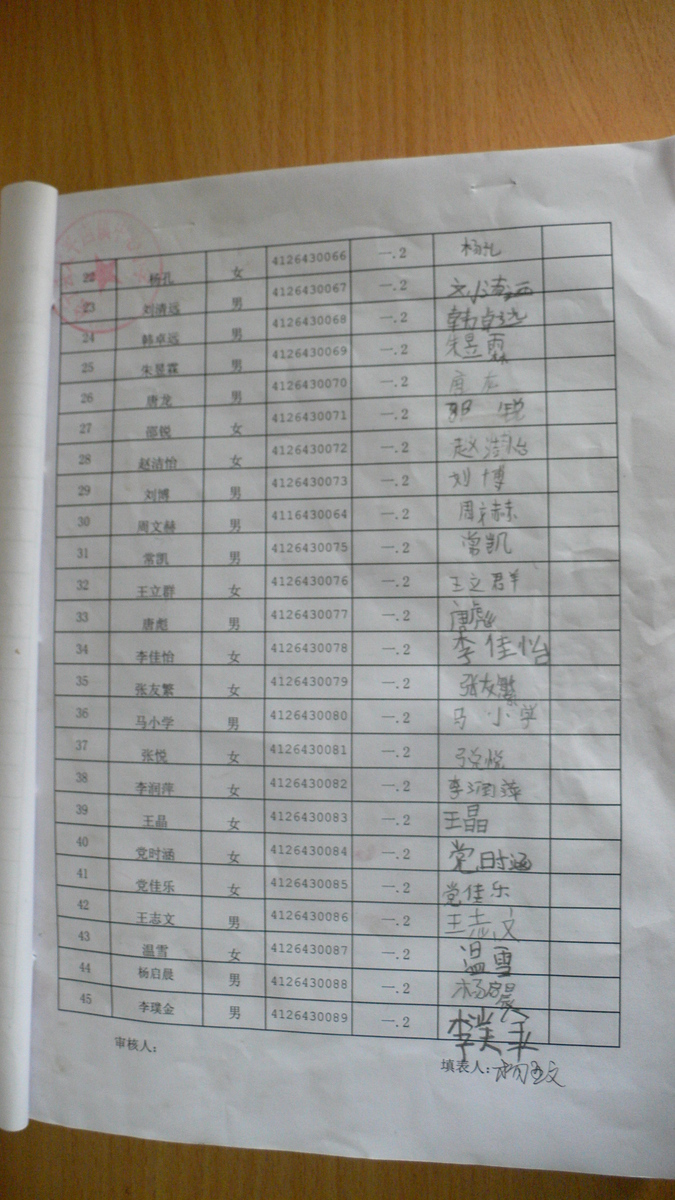 22 杨孔 女 4126430066 一.2 杨孔
23 刘清远 男 4126430067 一.2 刘清远
24 韩卓远 男 4126430068 一.2 韩卓远
25 朱昱霖 男 4126430069 一.2 朱昱霖
26 唐龙 男 4126430070 一.2 唐龙
27 邵锐 女 4126430071 一.2 邵锐
28 赵洁怡 女 4126430072 一.2 赵洁怡
29 刘博 男 4126430073 一.2 刘博
30 周文赫 男 4116430064 一.2 周文赫
31 常凯 男 4126430075 一.2 常凯
32 王立群 女 4126430076 一.2 王立群
33 唐彪 男 4126430077 一.2 唐彪
34 李佳怡 女 4126430078 一.2 李佳怡
35 张友繁 女 4126430079 一.2 张友繁
36 马小学 男 4126430080 一.2 马小学
37 张悦 女 4126430081 一.2 张悦
38 李润萍 女 4126430082 一.2 李润萍
39 王晶 女 4126430083 一.2 王晶
40 党时涵 女 4126430084 一.2 党时涵
41 党佳乐 女 4126430085 一.2 党佳乐
42 王志文 男 4126430086 一.2 王志文
43 温雪 女 4126430087 一.2 温雪
44 杨启晨 男 4126430088 一.2 杨启晨
45 李璞金 男 4126430089 一.2
审核人: 填表人: